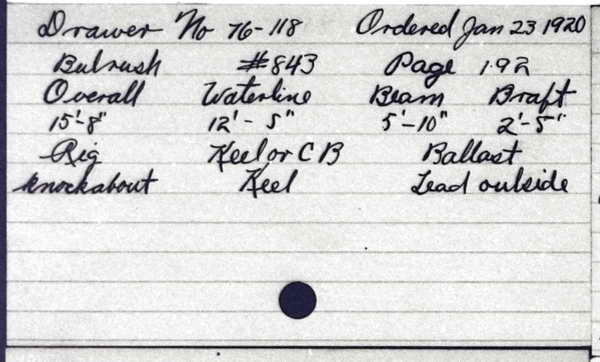 Drawer No 76-118 Ordered Jan 23 1920
Bulrush #843 Page 192
Overall Waterline Beam Draft
15'-8" 12'-5" 5'-10" 2'-5"
Rig Keel or C B Ballast
Knockabout Keel Lead outside